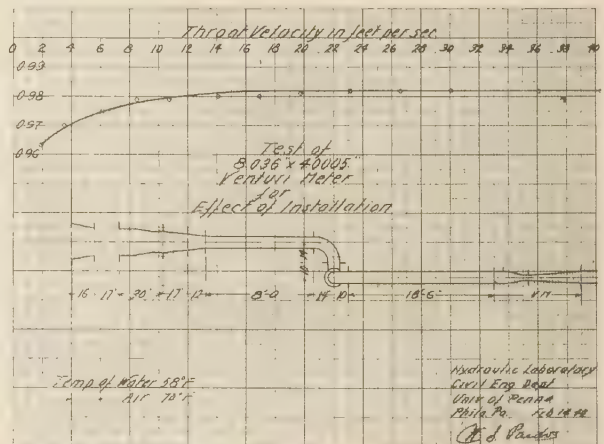 Throat Velocity in feet per sec
0 2 4 6 8 10 12 14 16 18 20 22 24 26 28 30 32 34 36 38 40
0.99
0.98
0.97
0.96
Test of
8.036" x 4.0005"
Venturi Meter
for
Effect of Installation
16" 17" 30" 17" 12" 8'-0 14" 10" 18'-6" V.M.
Temp of Water 58°F
" " Air 70°F
Hydraulic Laboratory
Civil Eng Dept
Univ of Penna
Phila. Pa. Feb 14
W. S. Pardoe